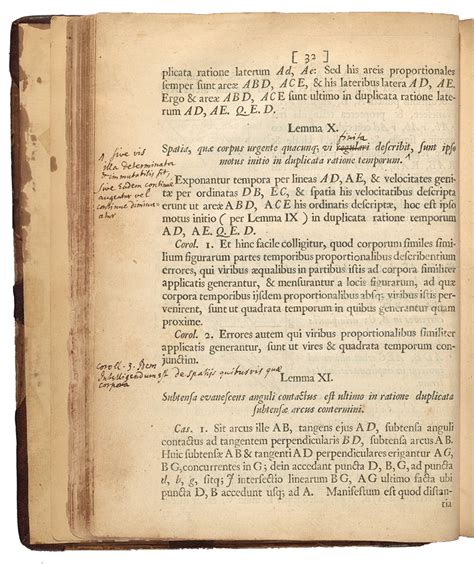 [ 32 ]
plicata ratione laterum Ad, Ae: Sed his areis proportionales
semper sunt areæ ABD, ACE, & his lateribus latera AD, AE.
Ergo & areæ ABD, ACE sunt ultimo in duplicata ratione late-
rum AD, AE. Q. E. D.
Lemma X.
finita
Spatia, quæ corpus urgente quacunq; vi regulari describit, sunt ipso
motus initio in duplicata ratione temporum.
^. sive vis
illa determinata
& immutabilis sit,
sive Eadem continuo
augeatur vel
continuo diminu-
atur
Exponantur tempora per lineas AD, AE, & velocitates genitæ
per ordinatas DB, EC, & spatia his velocitatibus descripta
erunt ut areæ ABD, ACE his ordinatis descriptæ, hoc est ipso
motus initio ( per Lemma IX ) in duplicata ratione temporum
AD, AE. Q. E. D.
Corol. 1. Et hinc facile colligitur, quod corporum similes similium
figurarum partes temporibus proportionalibus describentium
errores, qui viribus æqualibus in partibus istis ad corpora similiter
applicatis generantur, & mensurantur a locis figurarum, ad quæ
corpora temporibus ijsdem proportionalibus absq; viribus istis per-
venirent, sunt ut quadrata temporum in quibus generantur quam
proxime.
Corol. 2. Errores autem qui viribus proportionalibus similiter
applicatis generantur, sunt ut vires & quadrata temporum con-
junctim.
Corol. 3. Idem
Intelligendum est de spatijs quibusvis quæ
corpora
Lemma XI.
Subtensa evanescens anguli contactus est ultimo in ratione duplicata
subtensæ arcus contermini.
Cas. 1. Sit arcus ille AB, tangens ejus AD, subtensa anguli
contactus ad tangentem perpendicularis BD, subtensa arcus AB.
Huic subtensæ AB & tangenti AD perpendiculares erigantur AG,
BG, concurrentes in G; dein accedant puncta D, B, G, ad puncta
d, b, g, sitq; J intersectio linearum BG, AG ultimo facta ubi
puncta D, B accedunt usq; ad A. Manifestum est quod distan-
tia